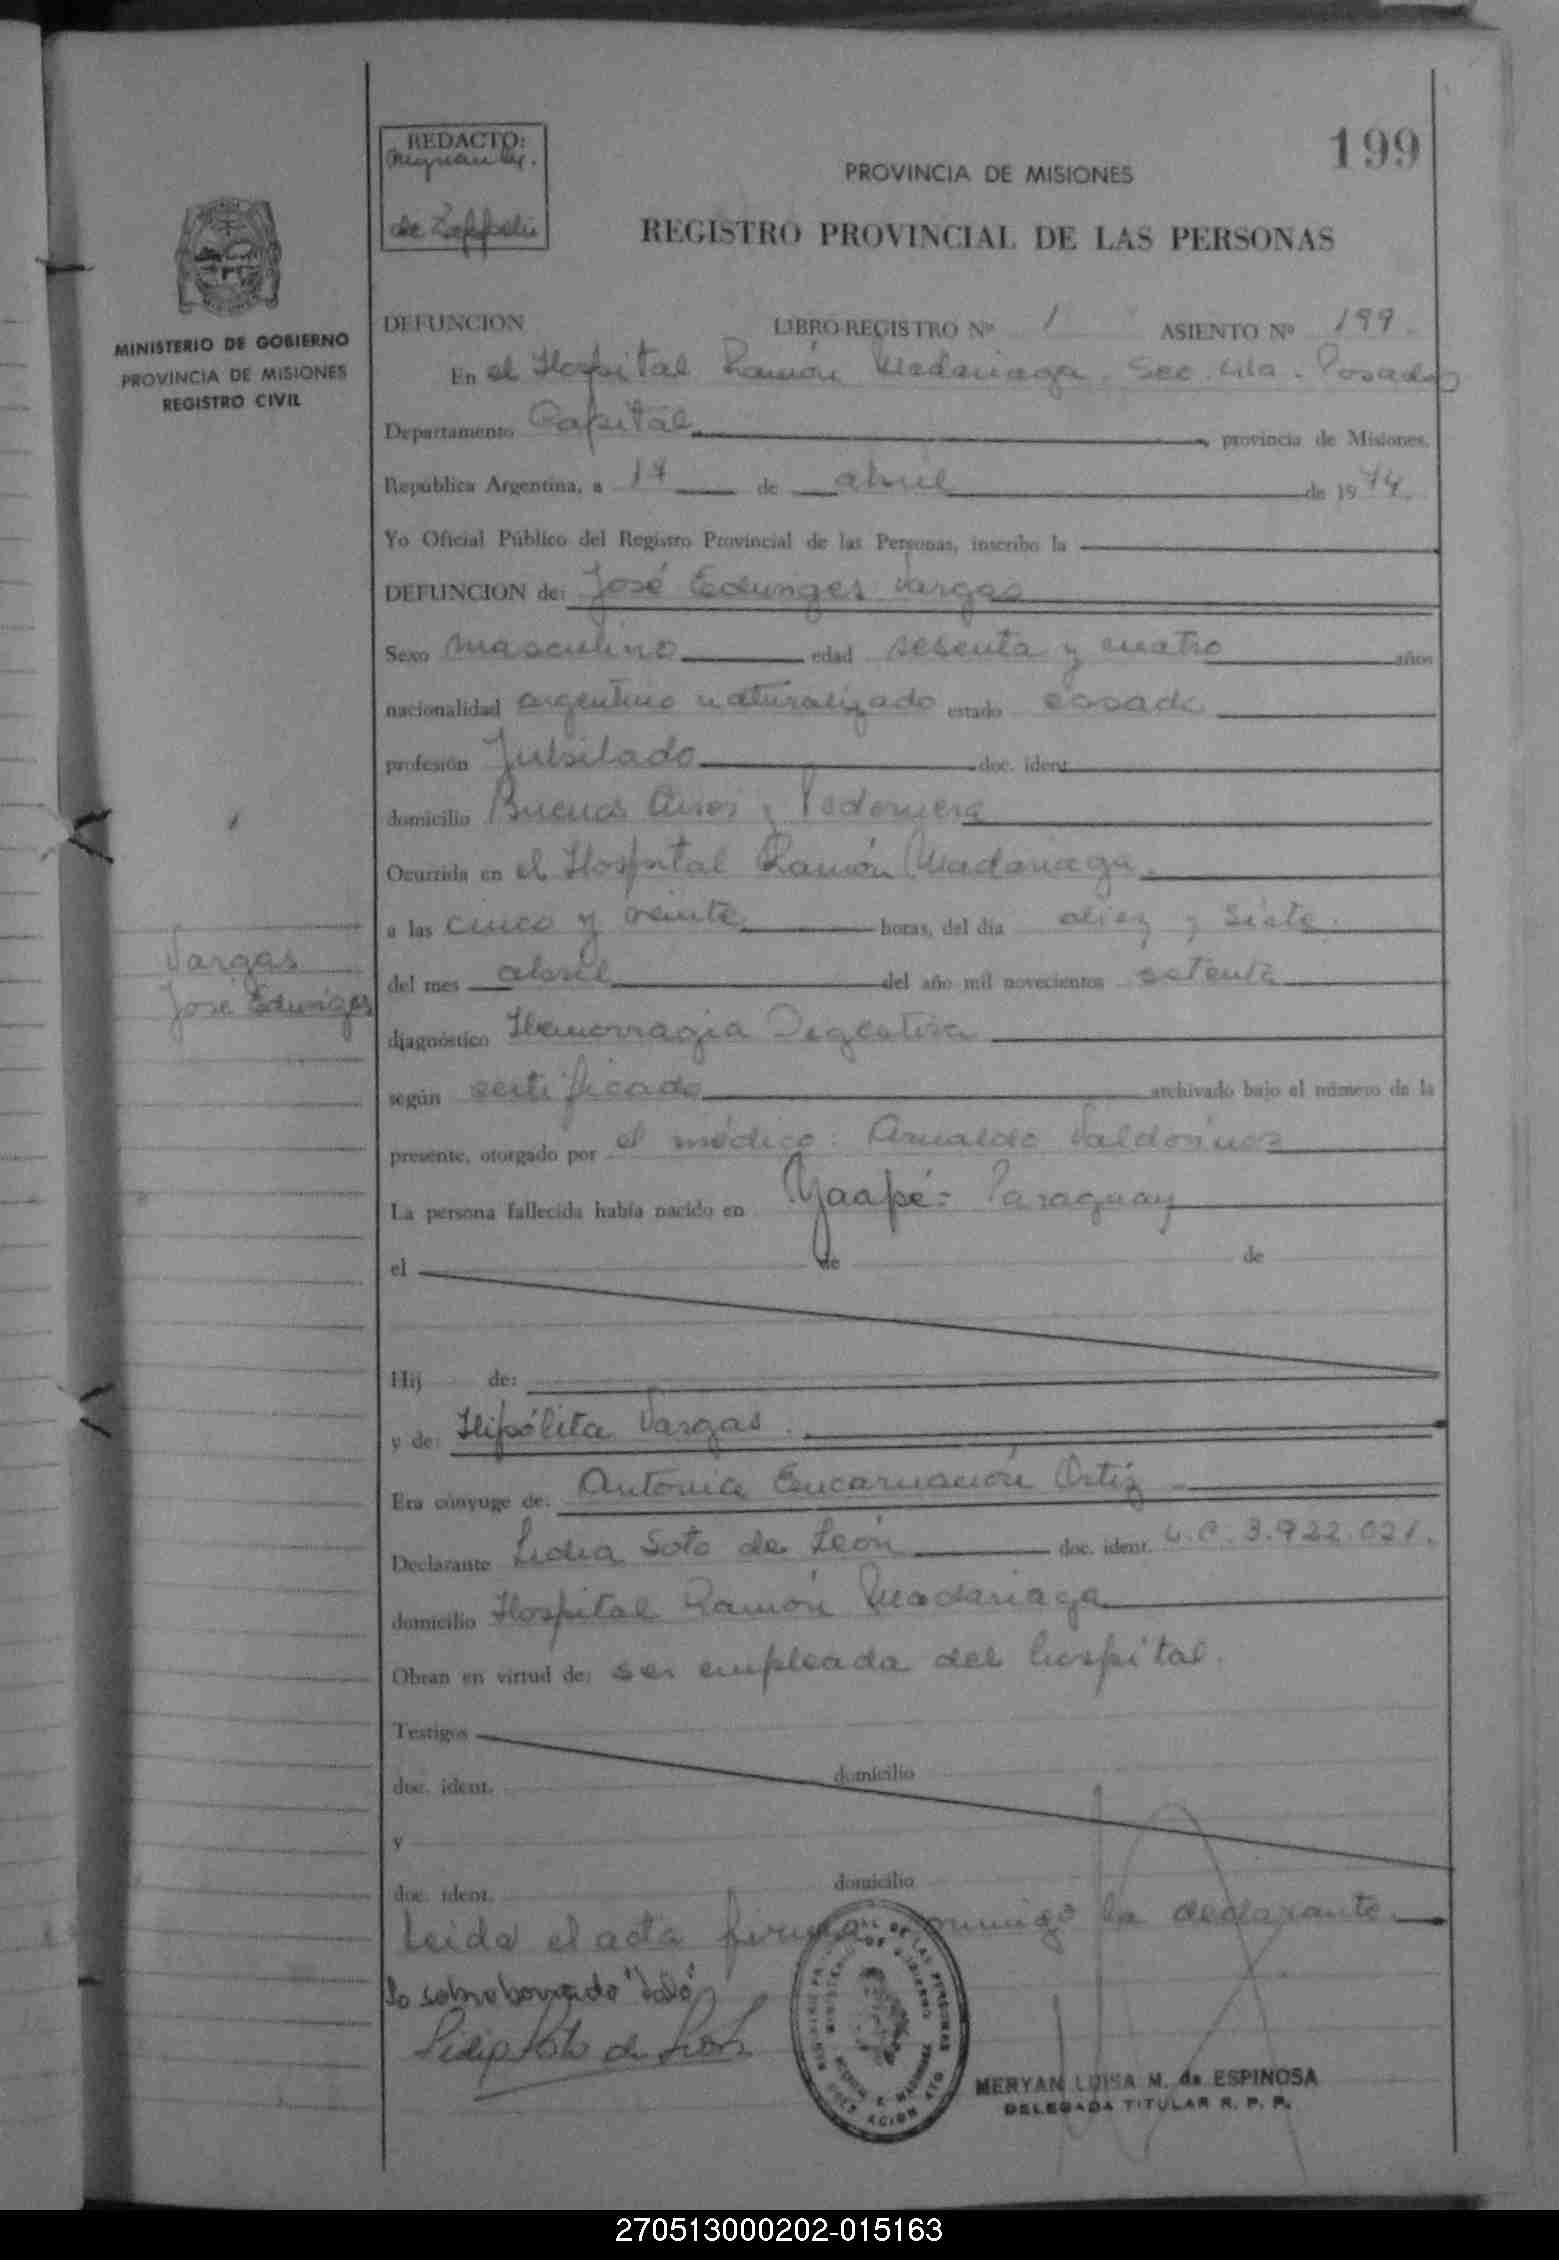 199
REDACTO:
de Zappelli
PROVINCIA DE MISIONES
REGISTRO PROVINCIAL DE LAS PERSONAS
MINISTERIO DE GOBIERNO
PROVINCIA DE MISIONES
REGISTRO CIVIL
DEFUNCION LIBRO REGISTRO Nº 1 ASIENTO Nº 199.
En el Hospital Ramón Madariaga. Sec. 4ta. Posadas
Departamento Capital, provincia de Misiones,
República Argentina, a 17 de abril de 1974.
Yo Oficial Público del Registro Provincial de las Personas, inscribo la
DEFUNCION de: José Eduviges Vargas
Sexo masculino edad sesenta y cuatro años
nacionalidad argentino naturalizado estado casado
profesión Jubilado doc. ident.
domicilio Buenos Aires y Pedernera
Ocurrida en el Hospital Ramón Madariaga.
a las cinco y veinte horas, del día diez y siete.
del mes abril del año mil novecientos setenta
diagnóstico Hemorragia Digestiva
según certificado archivado bajo el número de la
presente, otorgado por el médico: Arnaldo Valdovinos
La persona fallecida había nacido en Yaapé= Paraguay
el de de
Hij de:
y de: Hipólita Vargas.
Era cónyuge de: Antonia Encarnación Ortiz
Declarante Lidia Soto de León doc. ident. L.C. 3.922.021.
domicilio Hospital Ramón Madariaga
Obran en virtud de: ser empleada del hospital.
Testigos
doc. ident. domicilio
y
doc. ident. domicilio
Leida el acta firma conmigo la declarante
Lo sobreborrado
Lidia Soto de León
MERYAN LUISA M. de ESPINOSA
DELEGADA TITULAR R. P. P.
Vargas
José Eduviges
270513000202-015163